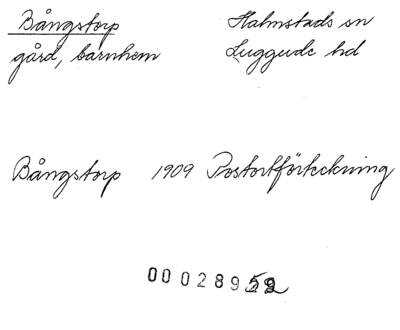 Bångstorp Halmstads sn
gård, barnhem Luggude hd
Bångstorp 1909 Postortförteckning